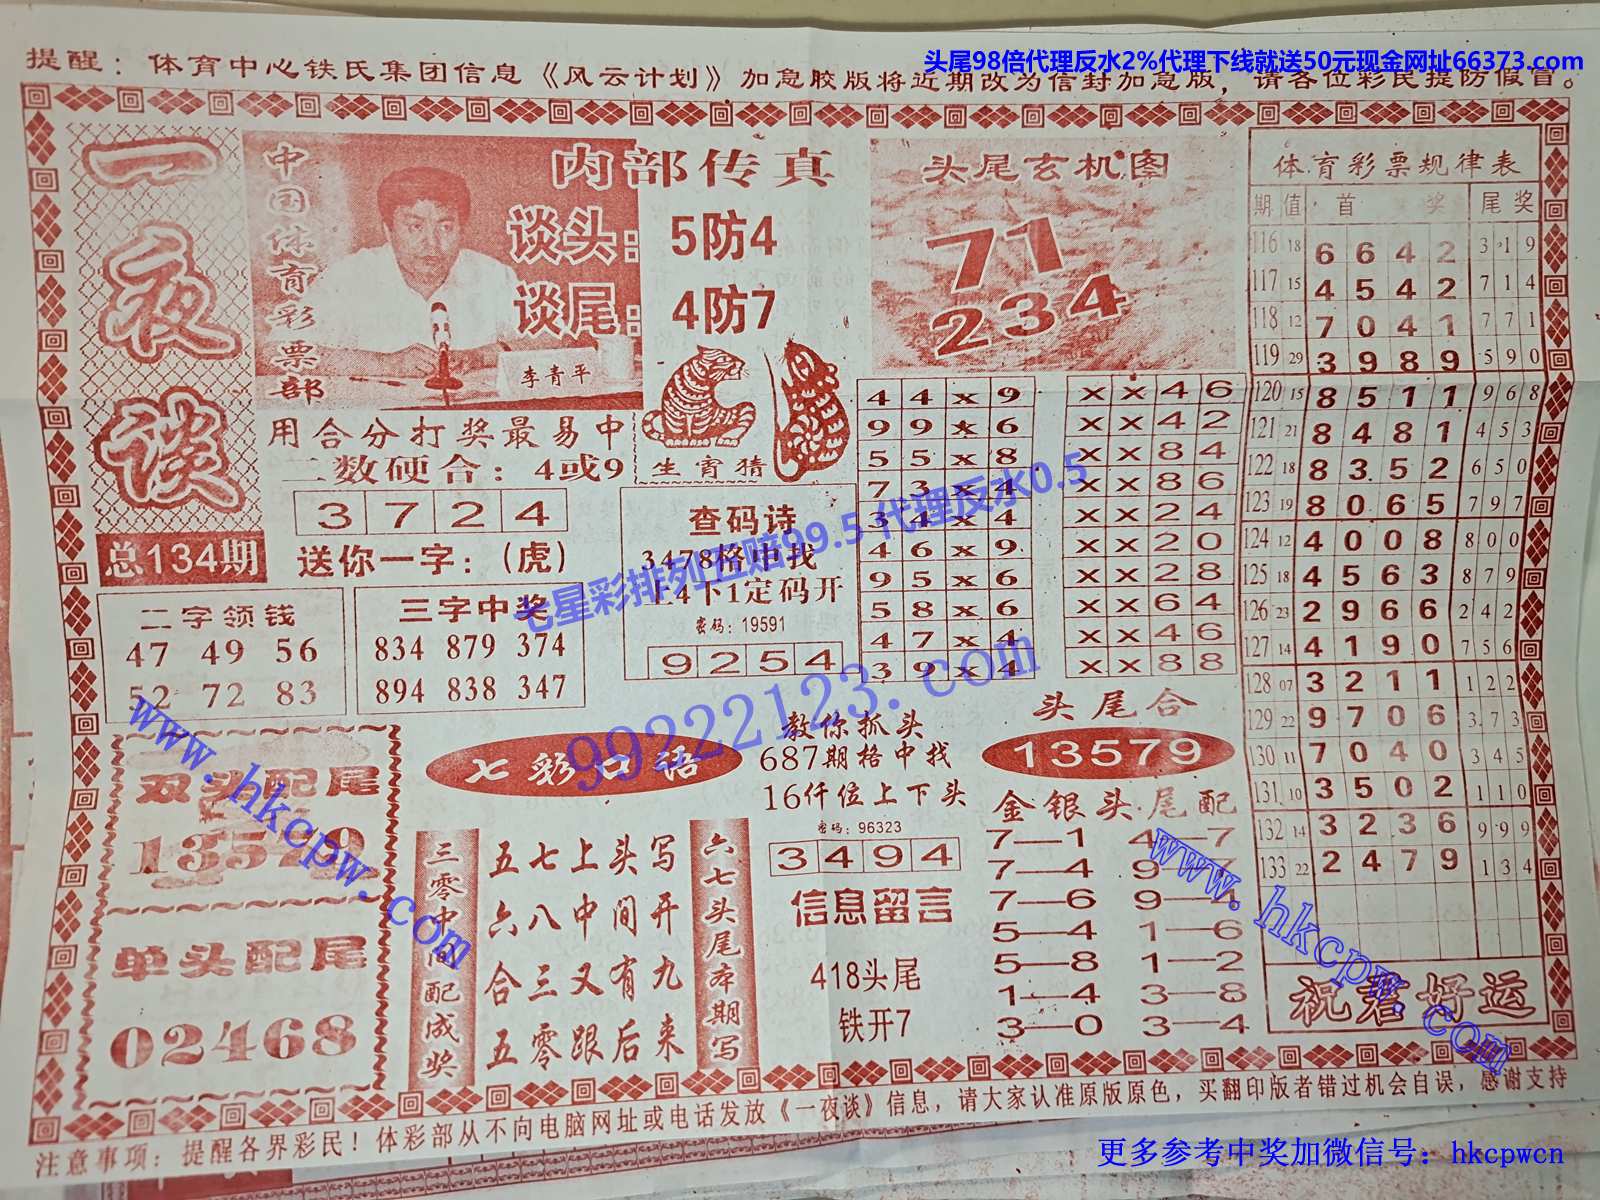 头尾98倍代理反水2%代理下线就送50元现金网址66373.com
提醒：体育中心铁氏集团信息《风云计划》加急胶版将近期改为信封加急版，请各位彩民提防假冒。
一夜谈
总134期
中国体育彩票部
内部传真
谈头：5防4
谈尾：4防7
李青平
用合分打奖最易中
二数硬合：4或9
3 7 2 4
送你一字：（虎）
生宵猜
头尾玄机图
71
234
二字领钱
47 49 56
52 72 83
三字中奖
834 879 374
894 838 347
查码诗
3478格中找
上4下1定码开
密码：19591
9 2 5 4
4 4 x 9
9 9 x 6
5 5 x 8
7 3 x 4
3 4 x 4
4 6 x 9
9 5 x 6
5 8 x 6
4 7 x 4
3 9 x 4
x x 4 6
x x 4 2
x x 8 4
x x 8 6
x x 2 4
x x 2 0
x x 2 8
x x 6 4
x x 4 6
x x 8 8
体育彩票规律表
期 值 首 奖 尾 奖
116 18 6 6 4 2 3 1 9
117 15 4 5 4 2 7 1 4
118 12 7 0 4 1 7 7 1
119 29 3 9 8 9 5 9 0
120 15 8 5 1 1 9 6 8
121 21 8 4 8 1 4 5 3
122 18 8 3 5 2 6 5 0
123 19 8 0 6 5 7 9 7
124 12 4 0 0 8 8 0 0
125 18 4 5 6 3 8 7 9
126 23 2 9 6 6 2 4 2
127 14 4 1 9 0 7 5 6
128 07 3 2 1 1 1 2 2
129 22 9 7 0 6 3 7 3
130 11 7 0 4 0 3 4 5
131 10 3 5 0 2 1 1 0
132 14 3 2 3 6 9 9 9
133 22 2 4 7 9 1 3 4
祝君好运
双头配尾
13579
单头配尾
02468
七彩口语
三零中间配成奖
五七上头写
六八中间开
合三又有九
五零跟后来
六七头尾本期写
教你抓头
687期格中找
16仟位上下头
密码：96323
3 4 9 4
信息留言
418头尾
铁开7
头尾合
13579
金银头尾配
7—1 4—7
7—4 9—7
7—6 9—4
5—4 1—6
5—8 1—2
1—4 3—8
3—0 3—4
七星彩排列五赔99.5 代理反水0.5
99222123.com
www.hkcpw.com
www.hkcpw.com
注意事项：提醒各界彩民！体彩部从不向电脑网址或电话发放《一夜谈》信息，请大家认准原版原色，买翻印版者错过机会自误，感谢支持
更多参考中奖加微信号：hkcpwcn